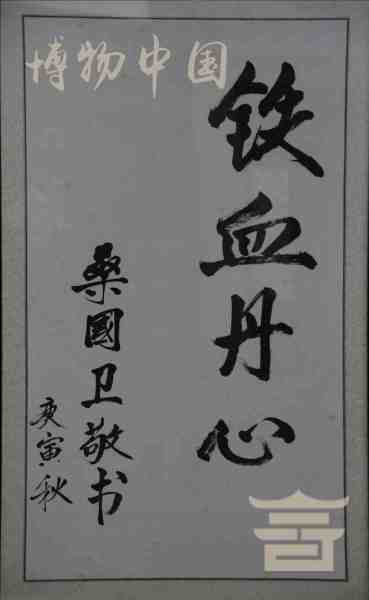 博物中国
铁血丹心
桑國卫敬书
庚寅秋